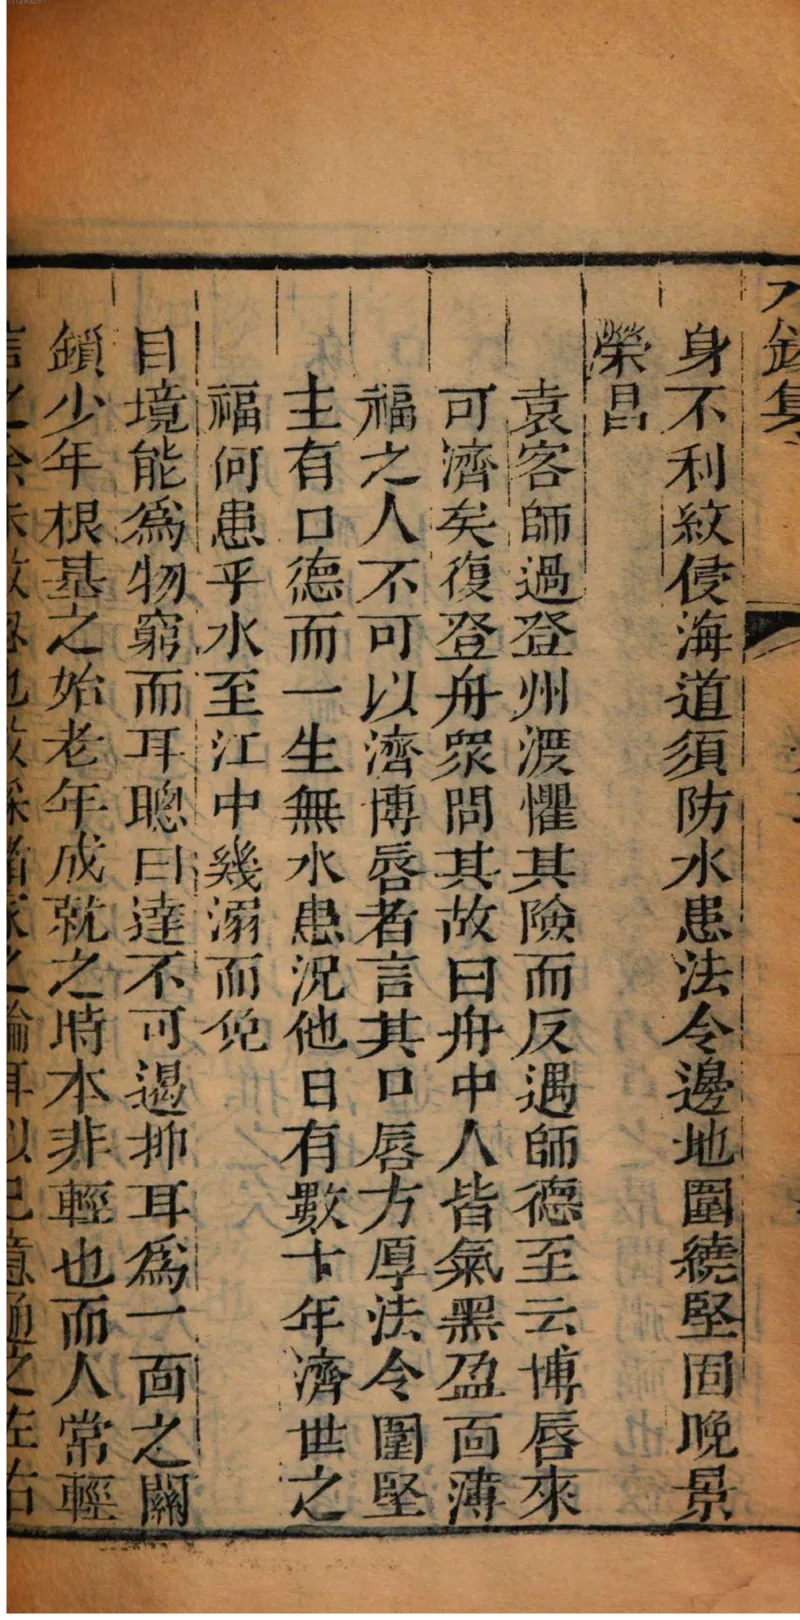 身不利紋侵海道須防水患法令邊地圍繞堅固晚景
榮昌
袁客師過登州渡懼其險而反遇師德至云博唇來
可濟矣復登舟衆問其故曰舟中人皆氣黑盈面薄
福之人不可以濟博唇者言其口唇方厚法令圍堅
主有口德而一生無水患況他日有數十年濟世之
福何患乎水至江中幾溺而免
目境能爲物窮而耳聰曰達不可遏抑耳爲一面之關
鎖少年根基之始老年成就之時本非輕也而人常輕